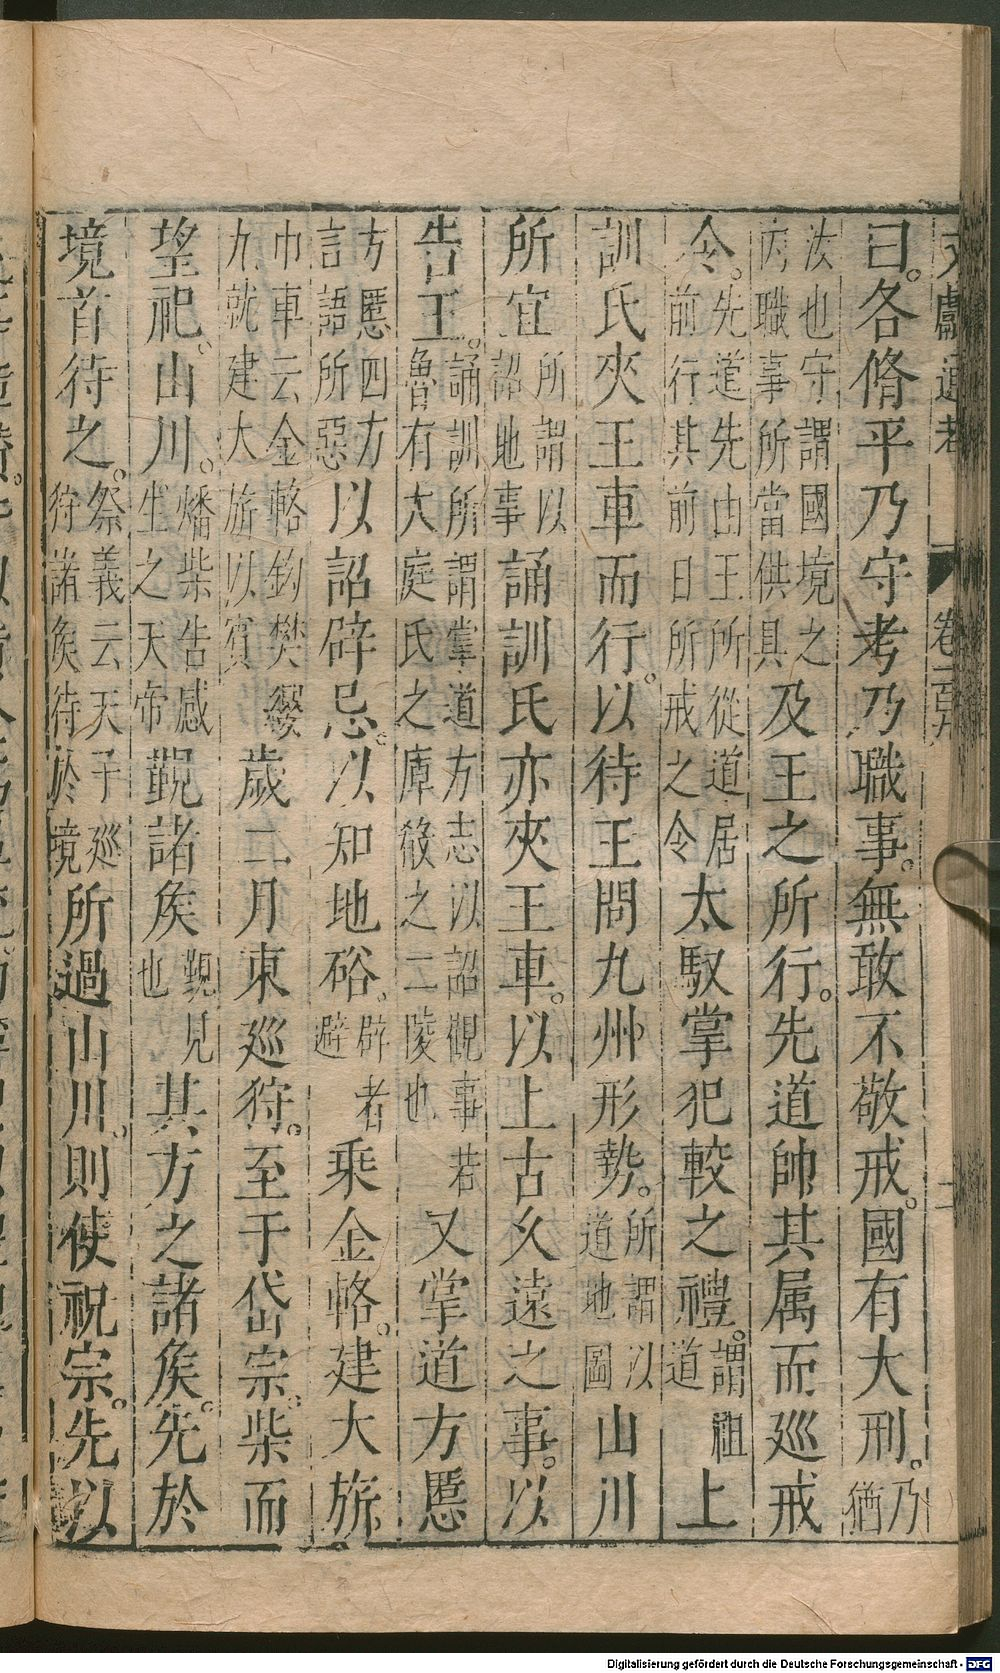 文獻通考 卷一百九 二
曰。各脩平乃守考乃職事。無敢不敬戒。國有大刑。乃猶
汝也守謂國境之內職事所當供具及王之所行。先道帥其属而巡戒
令。先道先由王所從道居前行其前日所戒之令太馭掌犯較之禮。謂祖道上
訓氏夾王車而行。以待王問九州形勢。所謂以道地圖山川
所宜所謂以詔地事誦訓氏亦夾王車。以上古久遠之事。以
告王。誦訓所謂掌道方志以詔觀事若魯有大庭氏之庫殽之二陵也又掌道方慝
方慝四方言語所惡以詔辟忌。以知地硲。辟者避乘金輅。建大旂。
巾車云金輅鈎樊纓九就建大旂以賓歲二月東巡狩。至于岱宗。柴而
望祀。山川。燔柴告感生之天帝覲諸矦覲見也其方之諸矦。先於
境首待之。祭義云天子巡狩諸矦待於境所過山川。則使祝宗。先以
Digitalisierung gefördert durch die Deutsche Forschungsgemeinschaft - DFG